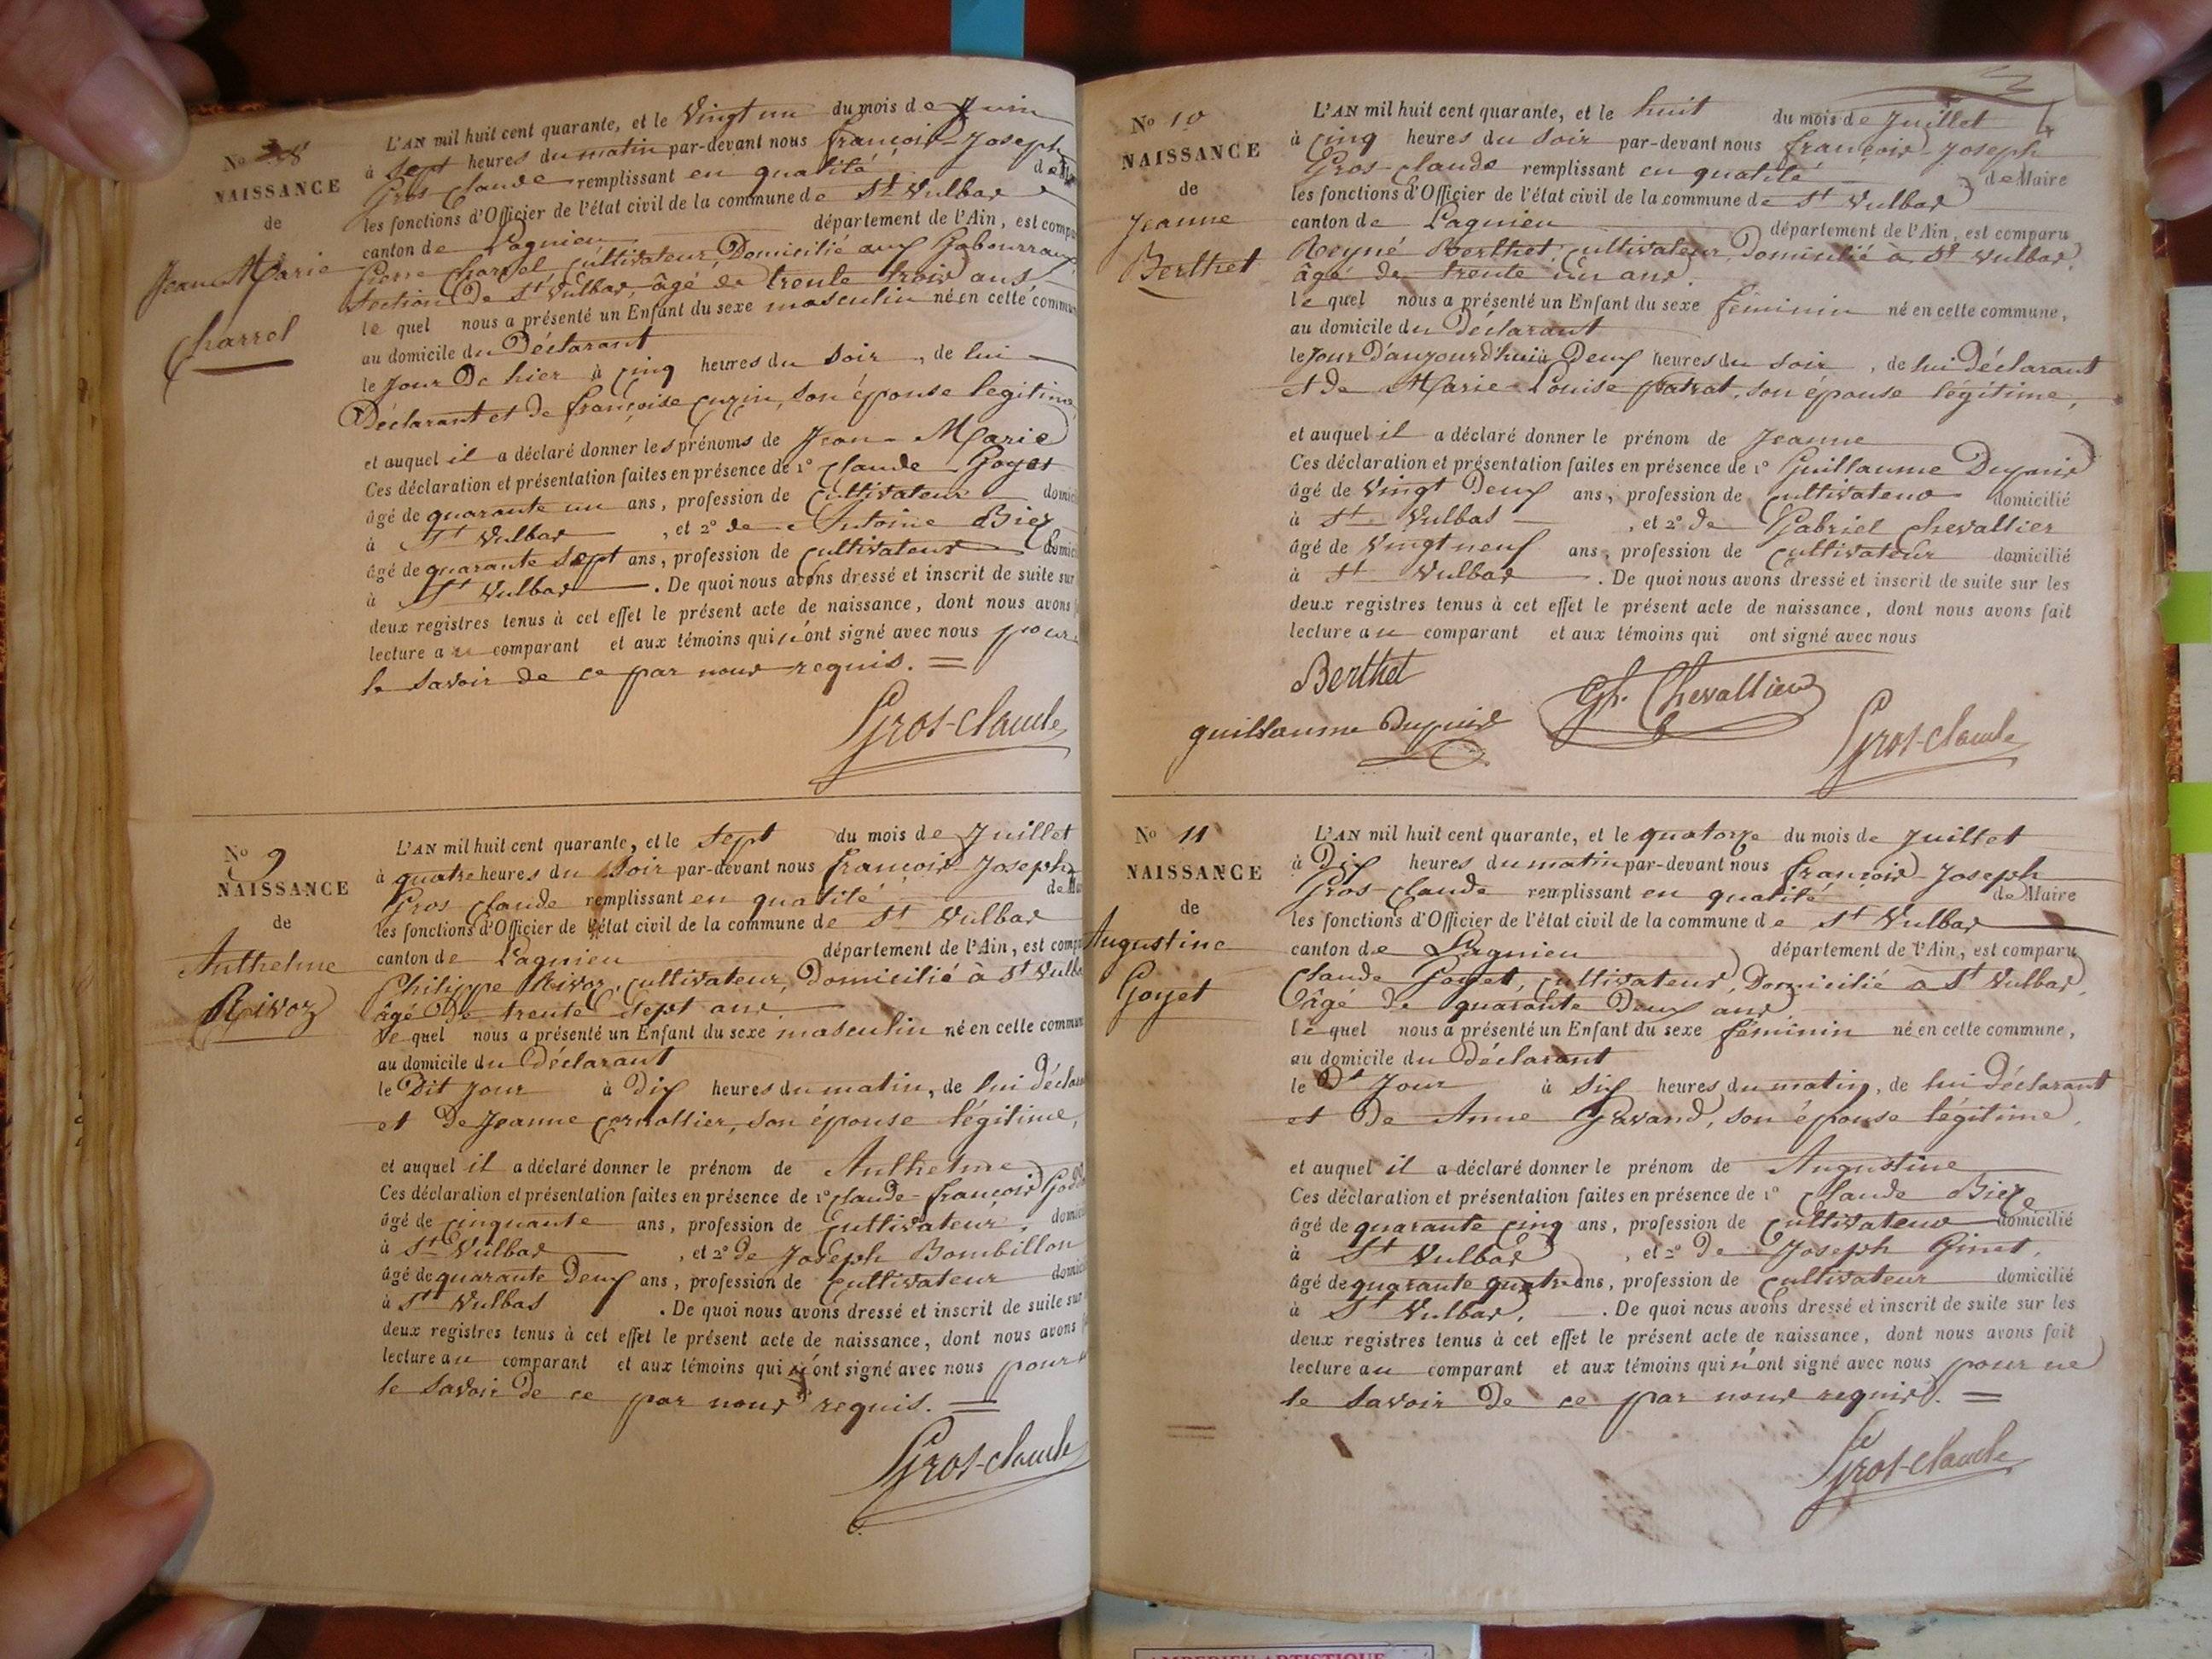 No 8
NAISSANCE
de
Jean Marie
Charrel
L'AN mil huit cent quarante, et le Vingt un du mois de Juin
à sept heures du matin par-devant nous françois-Joseph
Gros-Claude remplissant en qualité de
les fonctions d'Officier de l'état civil de la commune de St Vulbas
canton de Lagnieu département de l'Ain, est compa
Pierre Charrel Cultivateur Domicilié aux Gabourraux
Section De St Vulbas, âgé de trente trois ans
le quel nous a présenté un Enfant du sexe masculin né en cette commun
au domicile du Déclarant
le Jour De hier à cinq heures du soir, de lui
Déclarant et de françoise Cuzin, son épouse legitime,
et auquel il a déclaré donner les prénoms de Jean-Marie
Ces déclaration et présentation faites en présence de 1º Claude Goyet
âgé de quarante un ans, profession de Cultivateur domici
à St Vulbas, et 2º de Antoine Biez
âgé de quarante sept ans, profession de cultivateur domici
à St Vulbas. De quoi nous avons dressé et inscrit de suite sur
deux registres tenus à cet effet le présent acte de naissance, dont nous avons
lecture au comparant et aux témoins qui n'ont signé avec nous pour
le savoir de ce par nous requis. =
Gros-Claude
No 9
NAISSANCE
de
Anthelme
Rivoz
L'AN mil huit cent quarante, et le sept du mois de Juillet
à quatre heures du Soir par-devant nous françois-Joseph
Gros Claude remplissant en qualité de
les fonctions d'Officier de l'état civil de la commune de St Vulbas
canton de Lagnieu département de l'Ain, est compa
Philippe Rivoz, cultivateur, Domicilié à St Vulba
âgé De trente sept ans.
le quel nous a présenté un Enfant du sexe masculin né en cette commun
au domicile du Déclarant
le Dit Jour à Dix heures du matin, de lui Décla
et de Jeanne Cornollier, son épouse légitime,
et auquel il a déclaré donner le prénom de Anthelme
Ces déclaration et présentation faites en présence de 1º Claude-françois
âgé de cinquante ans, profession de cultivateur, domici
à St Vulbas, et 2º de Joseph Bombillon
âgé de quarante Deux ans, profession de cultivateur domici
à St Vulbas. De quoi nous avons dressé et inscrit de suite sur
deux registres tenus à cet effet le présent acte de naissance, dont nous avons
lecture au comparant et aux témoins qui n'ont signé avec nous pour
le savoir De ce par nous requis. =
Gros-Claude
No 10
NAISSANCE
de
Jeanne
Berthet
L'AN mil huit cent quarante, et le huit du mois de Juillet
à cinq heures du soir par-devant nous françois-Joseph
Gros-Claude remplissant en qualité de Maire
les fonctions d'Officier de l'état civil de la commune de St Vulbas
canton de Lagnieu département de l'Ain, est comparu
Reyné Berthet, cultivateur, Domicilié à St Vulbas,
âgé de trente un ans.
le quel nous a présenté un Enfant du sexe féminin né en cette commune,
au domicile du Déclarant
le Jour D'aujourd'hui à Deux heures du soir, de lui déclarant
et de Marie-Louise patrat, son épouse légitime,
et auquel il a déclaré donner le prénom de Jeanne
Ces déclaration et présentation faites en présence de 1º Guillaume Dupuis
âgé de Vingt Deux ans, profession de cultivateur domicilié
à St Vulbas, et 2º de Gabriel Chevallier
âgé de Vingt neuf ans, profession de cultivateur domicilié
à St Vulbas. De quoi nous avons dressé et inscrit de suite sur les
deux registres tenus à cet effet le présent acte de naissance, dont nous avons fait
lecture au comparant et aux témoins qui ont signé avec nous
Berthet
guillaume Dupuis
Chevallier
Gros-Claude
No 11
NAISSANCE
de
Augustine
Goyet
L'AN mil huit cent quarante, et le quatorze du mois de Juillet
à Dix heures du matin par-devant nous françois-Joseph
Gros-Claude remplissant en qualité de Maire
les fonctions d'Officier de l'état civil de la commune de St Vulbas
canton de Lagnieu département de l'Ain, est comparu
Claude Goyet, cultivateur, Domicilié à St Vulbas,
âgé de quarante Deux ans
le quel nous a présenté un Enfant du sexe féminin né en cette commune,
au domicile du Déclarant
le Dt Jour à six heures du matin, de lui déclarant
et De Anne Gavand, son épouse légitime,
et auquel il a déclaré donner le prénom de Augustine
Ces déclaration et présentation faites en présence de 1º Claude Bieze
âgé de quarante cinq ans, profession de cultivateur domicilié
à St Vulbas, et 2º De Joseph Ginet,
âgé de quarante quatre ans, profession de cultivateur domicilié
à St Vulbas. De quoi nous avons dressé et inscrit de suite sur les
deux registres tenus à cet effet le présent acte de naissance, dont nous avons fait
lecture au comparant et aux témoins qui n'ont signé avec nous pour ne
le savoir De ce par nous requis. =
Gros-Claude
AMBERIEU ARTISTIQUE